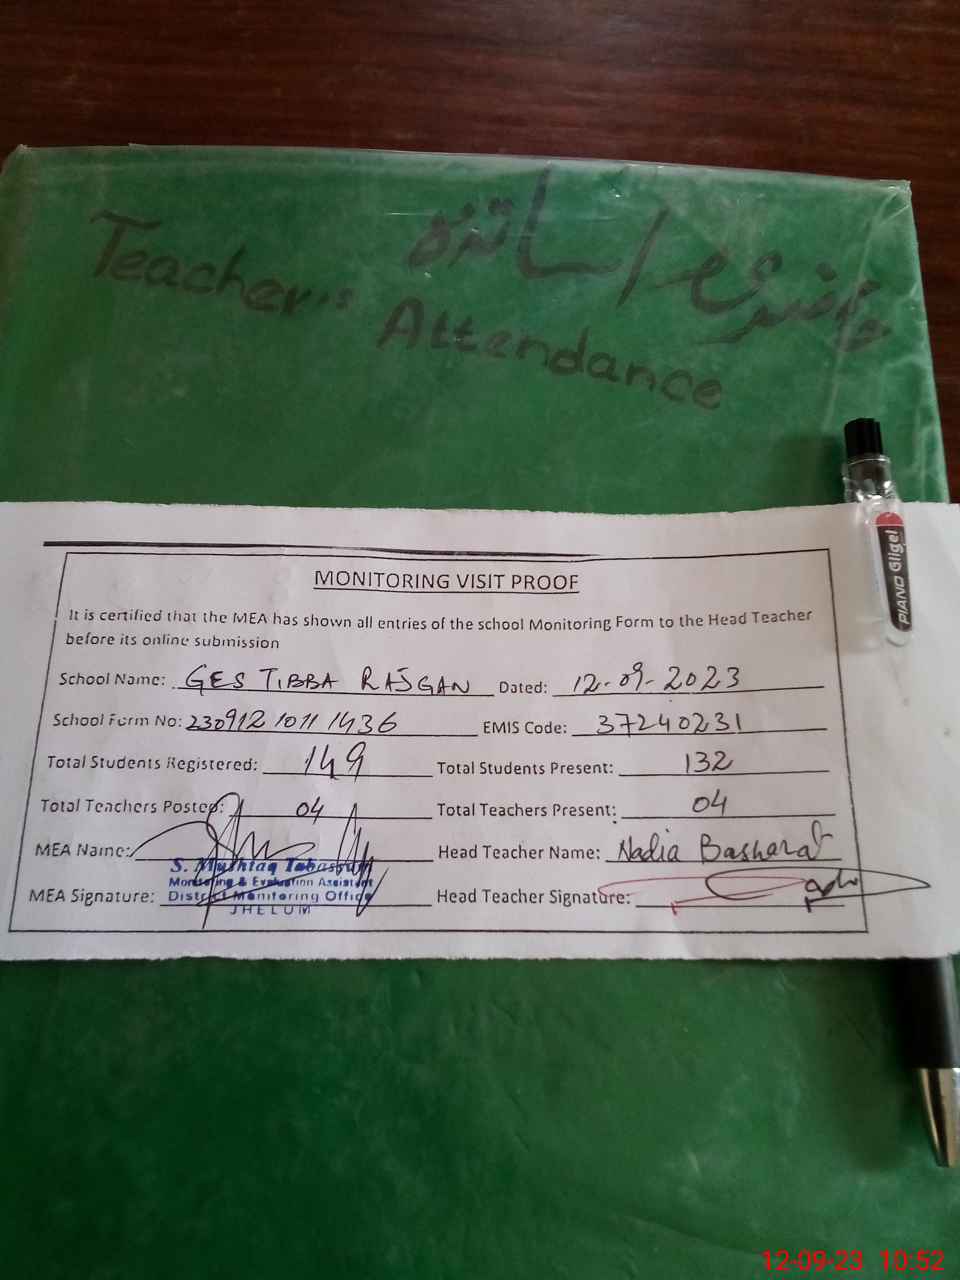 حاضری اساتذہ
Teacher's Attendance
PIANO Gligel
MONITORING VISIT PROOF
It is certified that the MEA has shown all entries of the school Monitoring Form to the Head Teacher
before its online submission
School Name: GES TIBBA RAJGAN Dated: 12-09-2023
School Form No: 230912 1011 1436 EMIS Code: 37240231
Total Students Registered: 149 Total Students Present: 132
Total Teachers Posted: 04 Total Teachers Present: 04
MEA Name: Head Teacher Name: Nadia Basharat
S. Mushtaq Tabassum
Monitoring & Evaluation Assistant
MEA Signature: District Monitoring Office Head Teacher Signature:
JHELUM
12-09-23 10:52